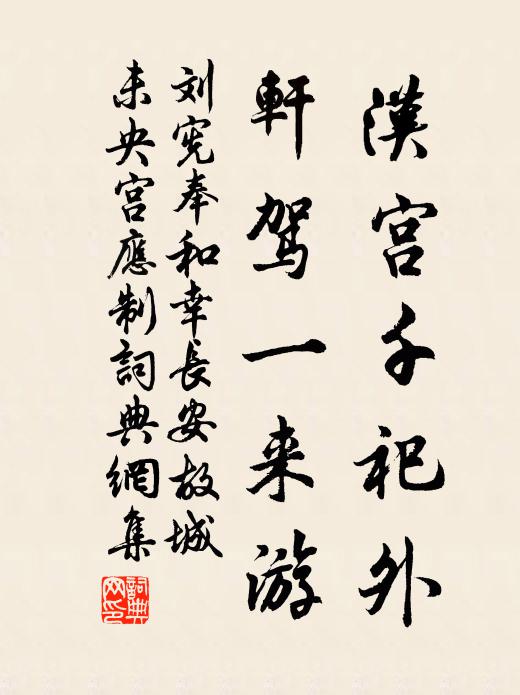 漢宫千祀外
軒駕一来游
刘宪奉和幸長安故城
未央宫應制詞典網集
詞典网印